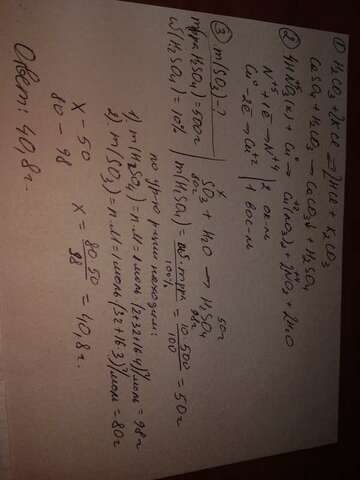 ① H₂CO₃ + 2KCl ⇄ 2HCl + K₂CO₃
CaSO₄ + H₂CO₃ → CaCO₃↓ + H₂SO₄
② 4HN⁺⁵O₃(к) + Cu⁰ → Cu⁺²(NO₃)₂ + 2NO₂ + 2H₂O
N⁺⁵ + 1ē → N⁺⁴ | 2 ок-ль
Cu⁰ - 2ē → Cu⁺² | 1 вос-ль
③ m(SO₃) - ?
m(р-ра H₂SO₄) = 500г
ω(H₂SO₄) = 10%
x 50г
SO₃ + H₂O → H₂SO₄
80г 98г
m(H₂SO₄) = ω·mр-ра / 100% = 10·500 / 100 = 50г
по ур-ю р-ции находим:
1) m(H₂SO₄) = n·M = 1 моль·(2+32+16·4)г/моль = 98г
2) m(SO₃) = n·M = 1 моль·(32+16·3)г/моль = 80г
x - 50
80 - 98
x = 80·50 / 98 = 40,8г.
Ответ: 40,8г.